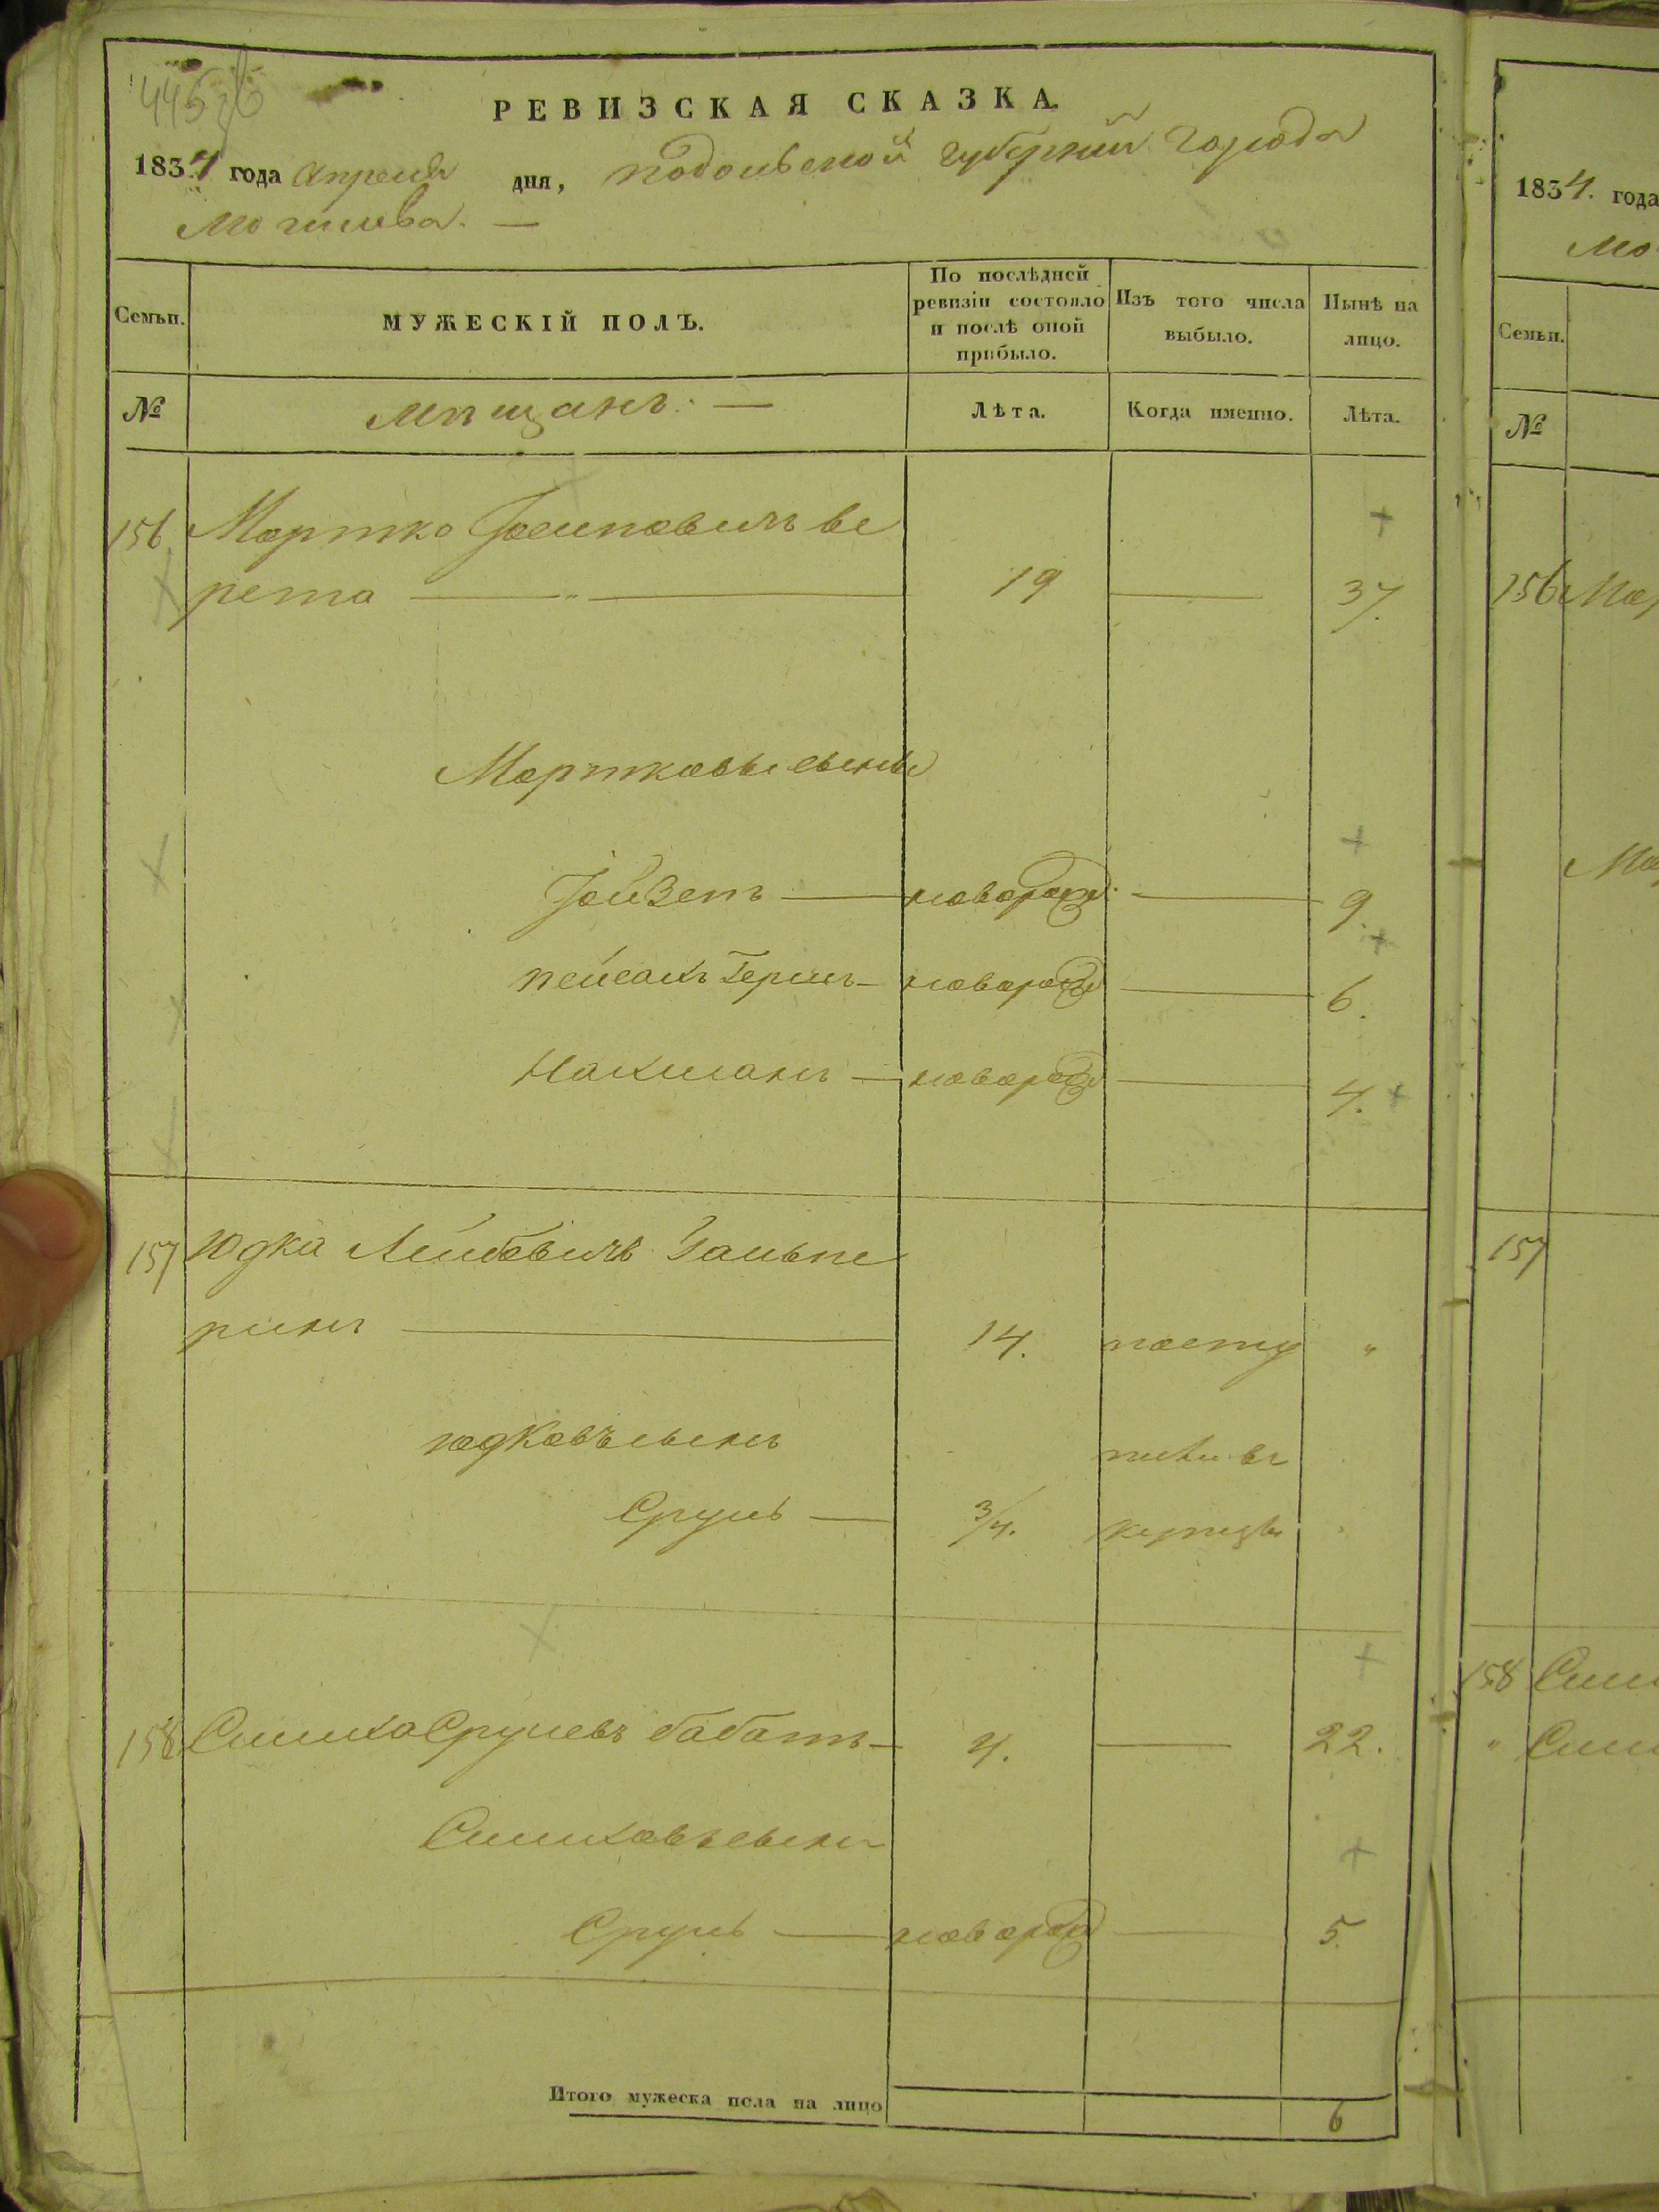 РЕВИЗСКАЯ СКАЗКА.
1834 года апреля дня, подольской губернии города
Могилева. —
Семьи.
МУЖЕСКІЙ ПОЛЪ.
По послѣдней ревизіи состояло и послѣ оной прибыло.
Изъ того числа выбыло.
Нынѣ на лицо.
№
мѣщанъ. —
Лѣта.
Когда именно.
Лѣта.
156 Мортко Іосиповичъ ве
рета — 19 — 37.
Мортковы сыны
новорож. — 9.
пейсахъ Герш — новорож — 6.
Нахманъ — новорож — 4.
157 Юдка Лейбовичъ Гальпе
ринъ — 14. посту "
юдковъ сынъ
пилъ въ
Сруль — 3/4. купцы
158 Симха Срулевъ бабатъ — 4. — 22.
Симховъ сынъ
Сруль — новорож — 5.
Итого мужеска пола на лицо 6
1834. года
Мо
Семьи.
№
156 Мор
Мо
157
158 Сим
" Сим